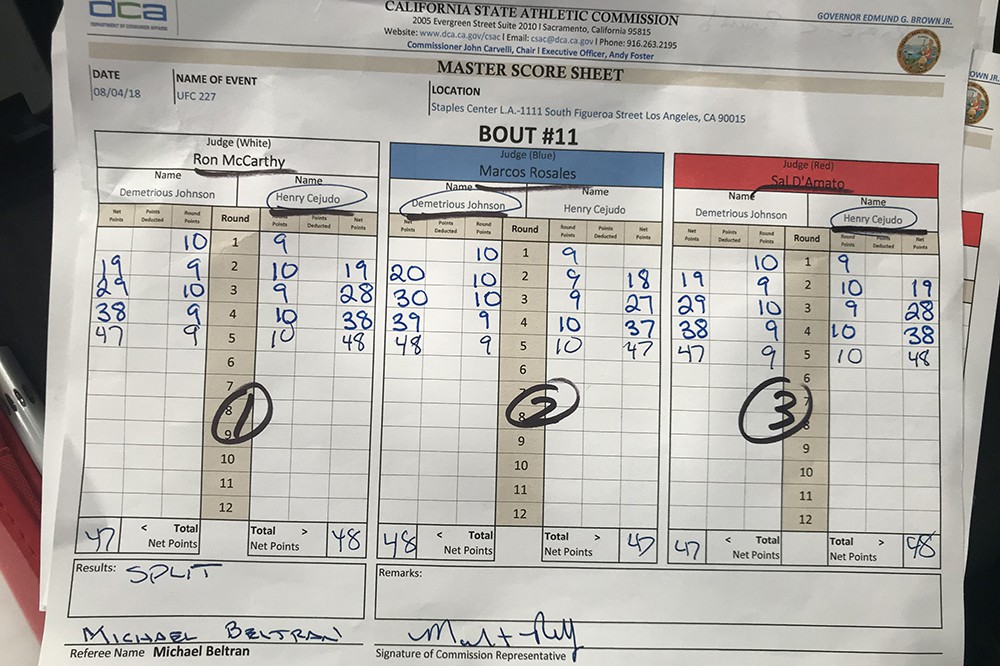 dca
DEPARTMENT OF CONSUMER AFFAIRS
CALIFORNIA STATE ATHLETIC COMMISSION
2005 Evergreen Street Suite 2010 | Sacramento, California 95815
Website: www.dca.ca.gov/csac | Email: csac@dca.ca.gov | Phone: 916.263.2195
Commissioner John Carvelli, Chair | Executive Officer, Andy Foster
GOVERNOR EDMUND G. BROWN JR.
OWN JR.
MASTER SCORE SHEET
DATE NAME OF EVENT LOCATION
08/04/18 UFC 227 Staples Center L.A.-1111 South Figueroa Street Los Angeles, CA 90015
BOUT #11
Judge (White) Judge (Blue) Judge (Red)
Ron McCarthy Marcos Rosales Sal D'Amato
Name Name Name Name Name Name
Demetrious Johnson Henry Cejudo Demetrious Johnson Henry Cejudo Demetrious Johnson Henry Cejudo
Net Points Points Deducted Round Points Round Round Points Points Deducted Net Points Net Points Points Deducted Round Points Round Round Points Points Deducted Net Points Net Points Points Deducted Round Points Round Round Points Points Deducted Net Points
10 1 9 10 1 9 10 1 9
19 9 2 10 19 20 10 2 9 18 19 9 2 10 19
29 10 3 9 28 30 10 3 9 27 29 10 3 9 28
38 9 4 10 38 39 9 4 10 37 38 9 4 10 38
47 9 5 10 48 48 9 5 10 47 47 9 5 10 48
6 6 6
7 7 7
8 8 8
1 2 3
9 9 9
10 10 10
11 11 11
12 12 12
47 < Total Net Points Total > Net Points 48 48 < Total Net Points Total > Net Points 47 47 < Total Net Points Total > Net Points 48
Results: SPLIT Remarks:
MICHAEL BELTRAN
Referee Name Michael Beltran Signature of Commission Representative